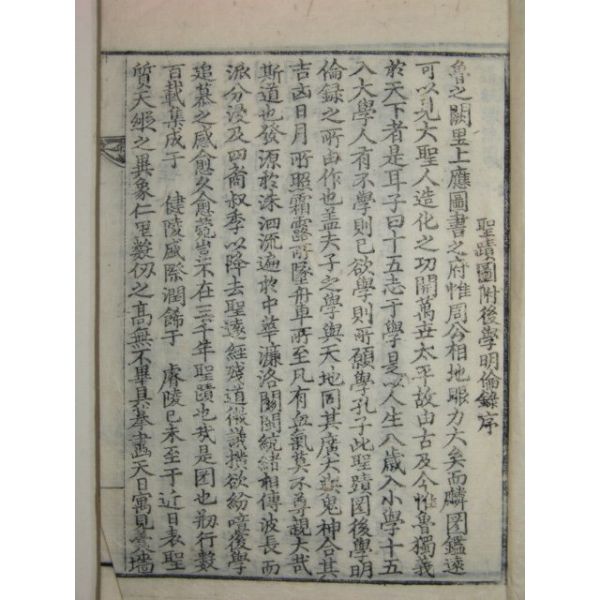 聖蹟圖附後學明倫錄序
魯之闕里上應圖書之府惟周公相地眼力大矣而麟図鑑遠
可以見大聖人造化之功開萬世太平故由古及今惟魯獨義
於天下者是耳子曰十五志于學是以人生八歲入小學十五
入大學人有不學則已欲學則所願學孔子此聖蹟図後學明
倫錄之所由作也盖夫子之學與天地同其廣大與鬼神合其
吉凶日月所照霜露所墜舟車所至凡有血氣莫不尊親大哉
斯道也發源於洙泗流遍於中華濂洛關閩統緒相傳波長而
派分漫及四裔叔季以降去聖遠經殘道微議撰欲紛嗟後學
追慕之感愈久愈荒豈不在三千年聖蹟也哉是図也刱行數
百載集成于 健陵盛際潤飾于 睿陵已未至于近日表聖
質天縱之異象仁里數仞之髙無不畢具奉畵天日寓見羹墻